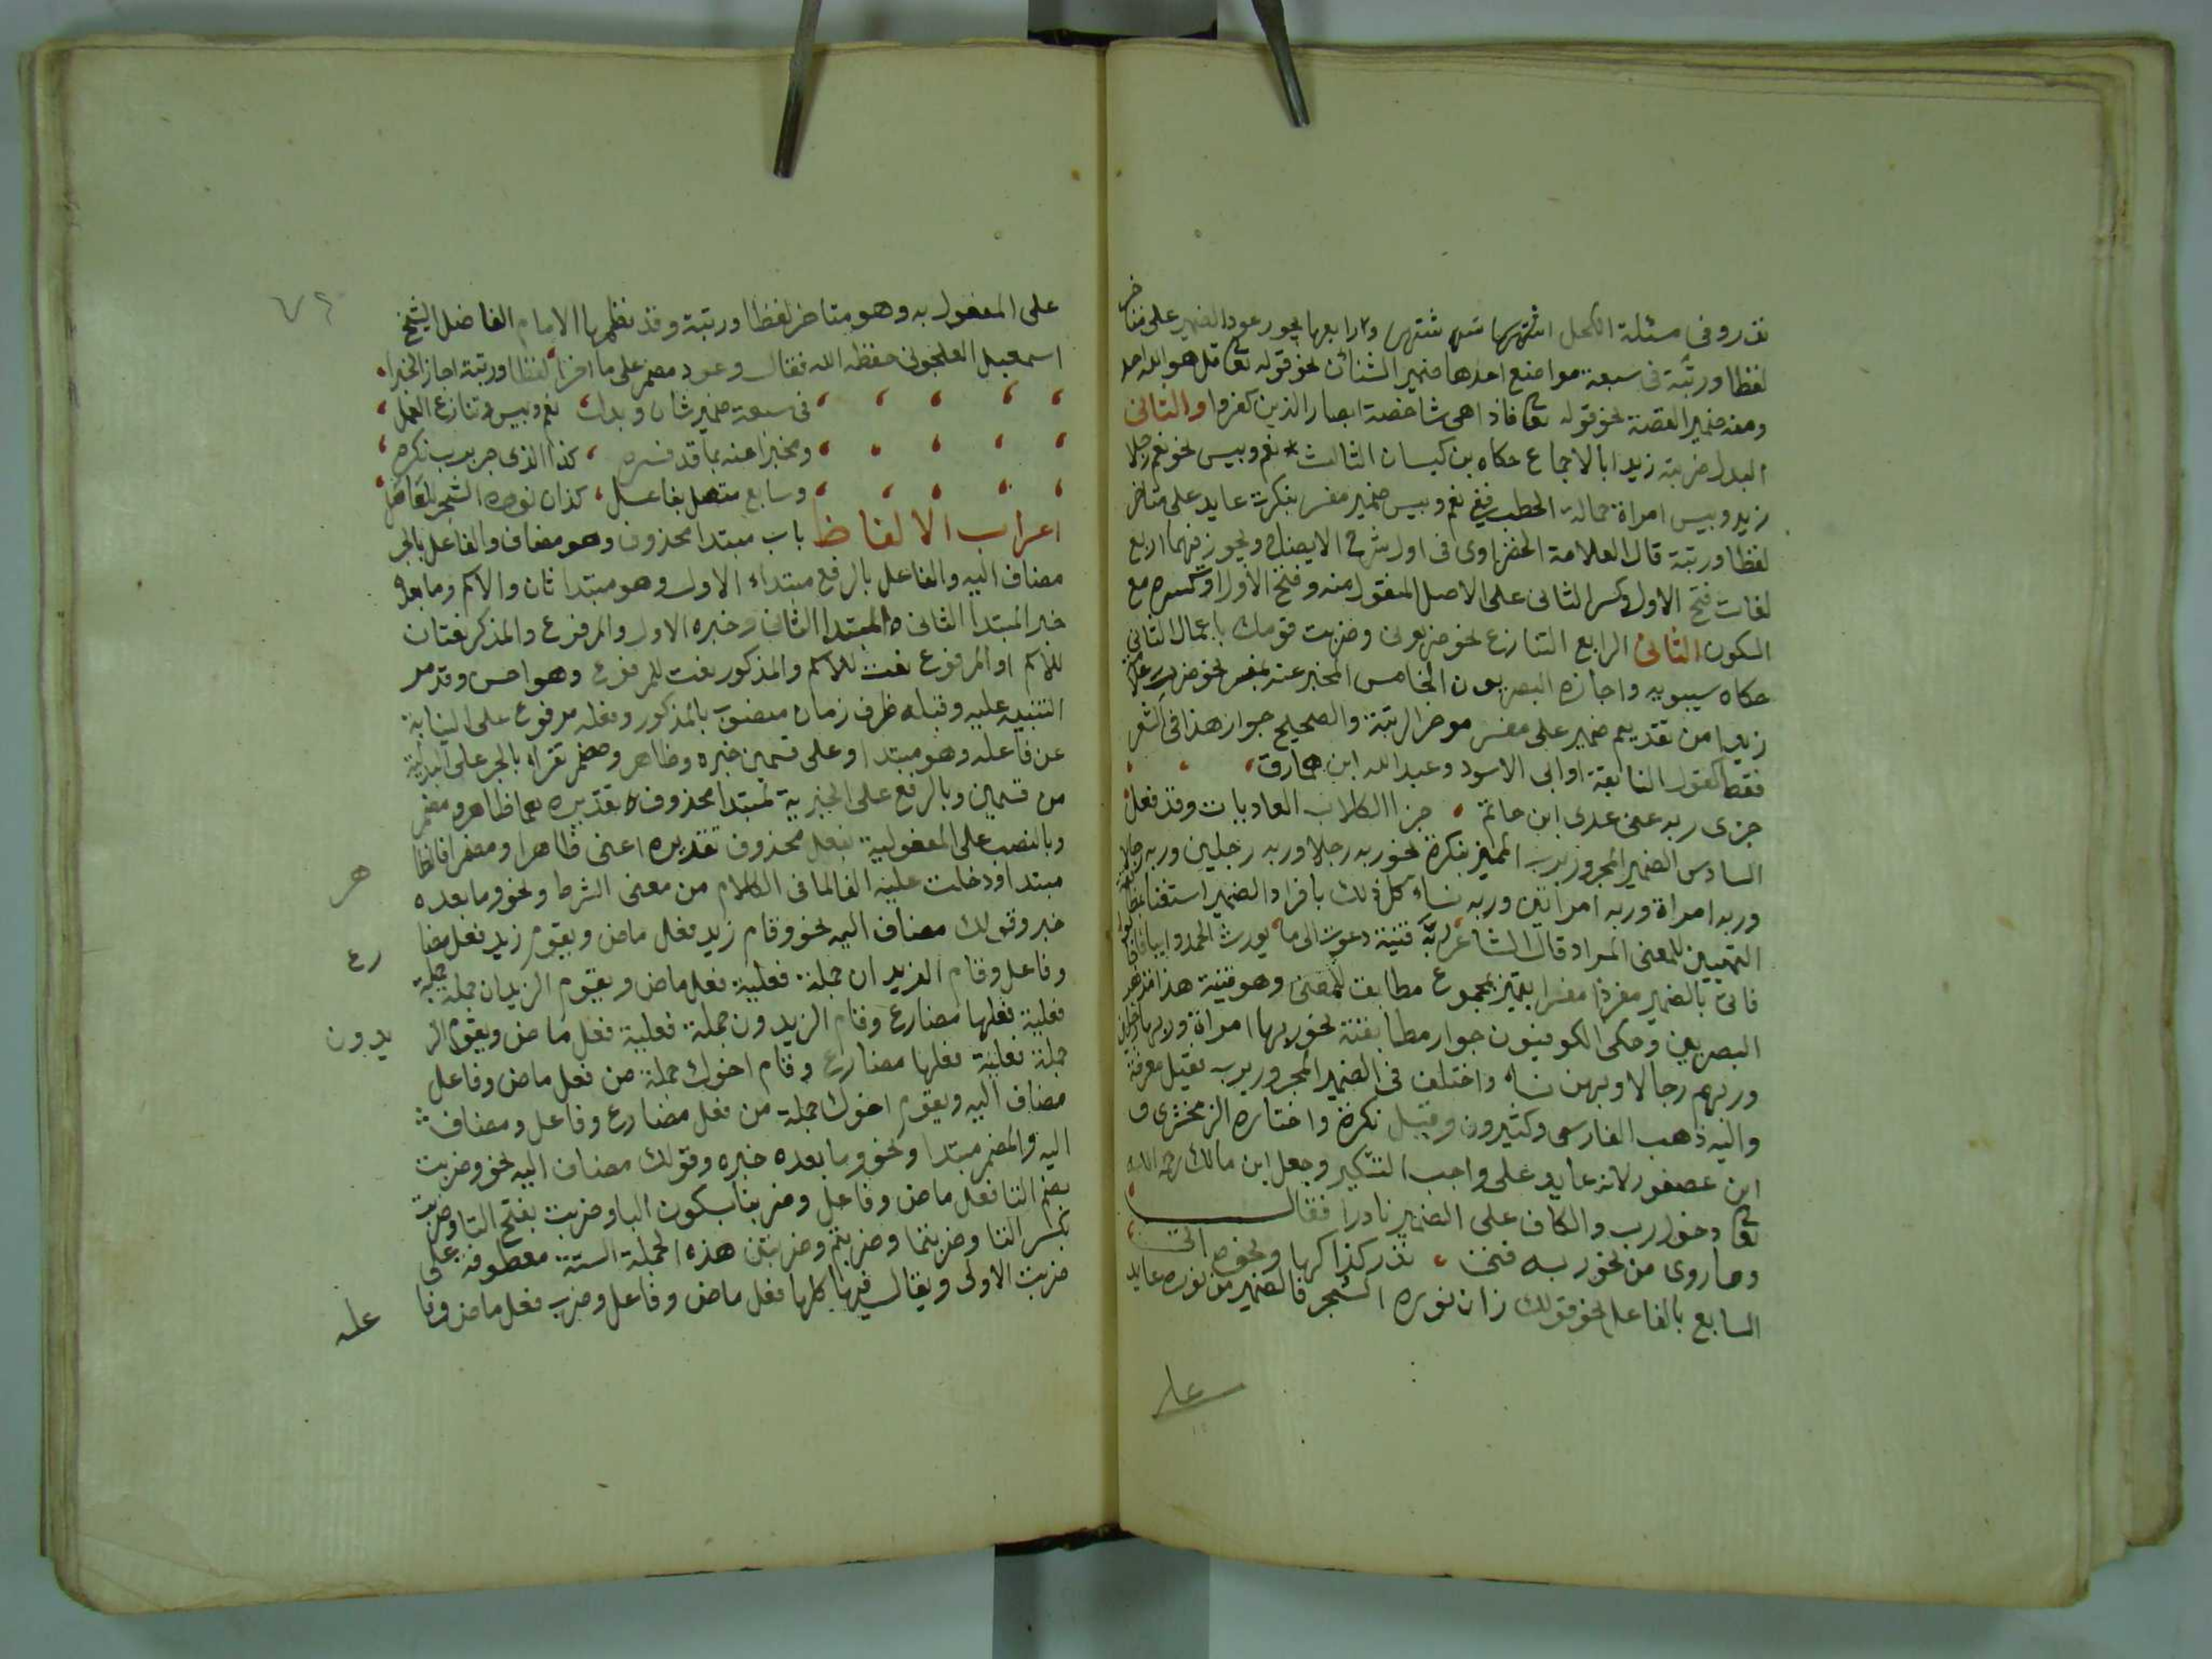 نذروفى مسئلة الكحل اشتهرتها شهر شتهر و٢ رابعها يجوز عود الضمير على متاخر
لفظا ورتبة فى سبعة مواضع احدها ضمير الشان نحو قوله تعا قل هو الله احد
ومنه ضمير القصة نحو قوله تعا فاذا هى شاخصة ابصار الذين كفروا والثانى
البدل ضربته زيدا بالاجماع حكاه بن كيسان الثالث نعم وبيس نحو نعم رجلا
زيد وبيس امراة حمالة الحطب ففى نعم وبيس ضمير مفسر بنكرت عايد على متاخر
لفظا ورتبة قال العلامة الحفناوى فى اول شرح الايضاح ويجوز فيهما اربع
لغات فتح الاول وكسر الثانى على الاصل المنقول منه وفتح الاول او كسره مع
السكون الثانى الرابع التنازع نحو ضربونى وضربت قومك باعمال الثانى
حكاه سيبويه واجازه البصريون الخامس المخبر عنه بمفسر نحو ضرب غلامه
زيدا من تقديم ضمير على مفسر موخر الرتبة والصحيح جواز هذا فى الشعر
فقط كقول النابغة او ابى الاسود وعبد الله ابن همارق
جزى ربه عنى عدى ابن حاتم ، جزا الكلاب العاديات وقد فعل
السادس الضمير المجرور برب المميز بنكرة نحو ربه رجلا وربه رجلين وربه رجالا
وربه امراة وربه امراتين وربه نساء كل ذلك بافراد الضمير استغنا بمطابقة
التمييز للمعنى المراد قال الشاعر ربه فتية دعوت الى ما يورث الحمد دايبا فاجابوا
فاتى بالضمير مفردا مفسرا بتمييز مجموع مطابق للمعنى وهو فتية هذا مذهب
البصريين وحكى الكوفيون جواز مطابقته نحو ربها امراة وربهما رجلين
وربهم رجالا وربهن نساء واختلف فى الضمير المجرور برب فقيل معرفة
واليه ذهب الفارسى وكثيرون وقيل نكرة واختاره الزمخشرى و
ابن عصفور لانه عايد على واجب التنكير وجعل ابن مالك رحمه الله
تعا دخول رب والكاف على الضمير نادرا فقال
وما روى من نحو ربه فتى ، نذر كذا كها ونحوه اتى
السابع بالفاعل نحو قولك زان نوره الشجر فالضمير من نوره عايد
على
على المفعول به وهو متاخر لفظا ورتبة وقد نظمها الامام الفاضل الشيخ
اسمعيل العلجونى حفظه الله فقال وعود مضمر على ما اخرا لفظا ورتبة اجاز الخبرا
فى سبعة ضمير شان وبدل ، نعم وبيس وتنازع العمل ،
ومخبرا عنه بما قد فسره ، كذا الذى جر برب نكره ،
وسابع متصل بفاعل ، كذان نوره الشجر للفاضل
اعراب الالفاظ باب مبتدا محذوف وهو مضاف والفاعل بالجر
مضاف اليه والفاعل بالرفع مبتداء الاول وهو مبتدا ثان والاسم وما بعده
خبر المبتدا الثانى والمبتدا الثانى وخبره الاول والمرفوع والمذكر نعتان
للاسم او المرفوع نعت للاسم والمذكور نعت للمرفوع وهو احسن وقد مر
التنبيه عليه وقبله ظرف زمان منصوب بالمذكور وفعله مرفوع على النيابة
عن فاعله وهو مبتدا وعلى قسمين خبره وظاهر ومضمر تقراه بالجر على البدلية
من قسمين وبالرفع على الخبرية لمبتدا محذوف تقديره هما ظاهر ومضمر
وبالنصب على المفعولية بفعل محذوف تقديره اعنى ظاهرا ومضمرا فالظا
هر
مبتدا ودخلت عليه الفا لما فى الكلام من معنى الشرط ونحو وما بعده
خبر وقولك مضاف اليه نحو وقام زيد فعل ماض ويقوم زيد فعل مضا
رع
وفاعل وقام الزيدان جملة فعلية فعل ماض ويقوم الزيدان جملة
فعلية فعلها مضارع وقام الزيدون جملة فعلية فعل ماض ويقوم الز
يدون
جملة فعلية فعلها مضارع وقام اخوك جملة من فعل ماض وفاعل
مضاف اليه ويقوم اخوك جملة من فعل مضارع وفاعل ومضاف
اليه والمضمر مبتدا ونحو وما بعده خبره وقولك مضاف اليه نحو وضربت
بضم التا فعل ماض وفاعل وضربنا بسكون البا وضربت بفتح التا وضربت
بكسر التا وضربتما وضربتم وضربتن هذه الجملة الستة معطوفة على
ضربت الاولى ويقال فيها كلها فعل ماض وفاعل وضرب فعل ماض وفا
عله